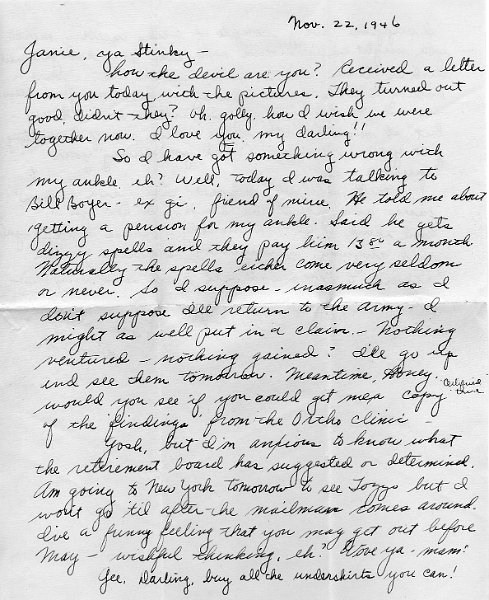 Nov. 22, 1946
Janie, ya Stinky –
How the devil are you? Received a letter
from you today with the pictures. They turned out
good, didn't they? Oh, golly, how I wish we were
together now. I love you, my darling!!
So I have got something wrong with
my ankle, eh? Well, today I was talking to
Bill Boyer – ex gi, friend of mine. He told me about
getting a pension for my ankle. Said he gets
dizzy spells and they pay him 13 80 a month
Naturally the spells either come very seldom
or never. So I suppose – inasmuch as I
don't suppose I'll return to the Army – I
might as well put in a claim. – Nothing
ventured – nothing gained? I'll go up
and see them tomorrow. Meantime, Honey –
would you see if you could get me a copy
of the findings from the Ortho clinic –
Gosh, but I'm anxious to know what
the retirement board has suggested or determind.
Am going to New York tomorrow to see but I
won't go 'til after the mailman comes around.
I've a funny feeling that you may get out before
May – wishful thinking, eh? Love ya – mam!
Gee, Darling, buy all the undershirts you can!